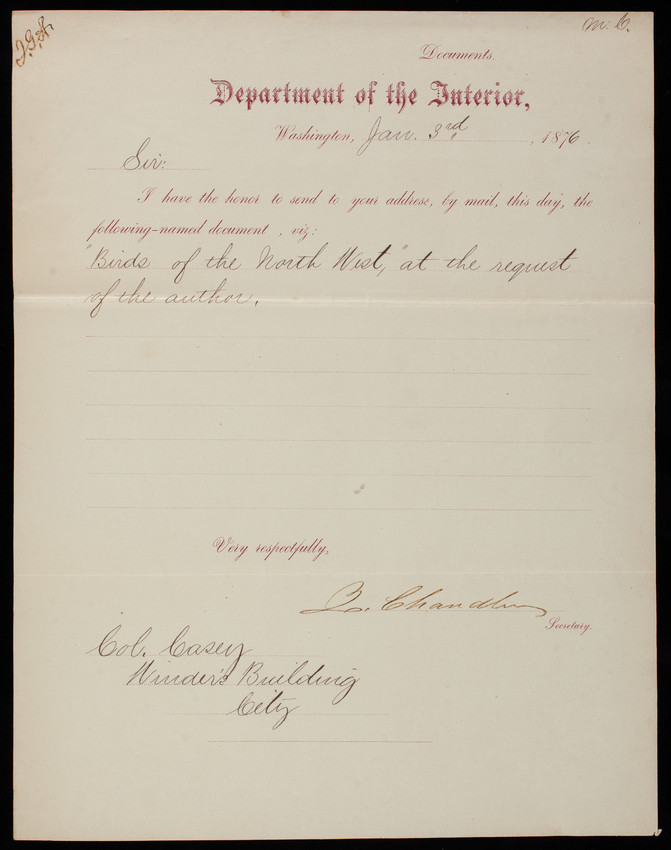 M. C.
Documents.
Department of the Interior,
Washington, Jan. 3rd, 1876.
Sir:
I have the honor to send to your address, by mail, this day, the
following-named document , viz:
"Birds of the North West," at the request
of the author.
Very respectfully,
Z. Chandler
Secretary.
Col. Casey
Winder's Building
City